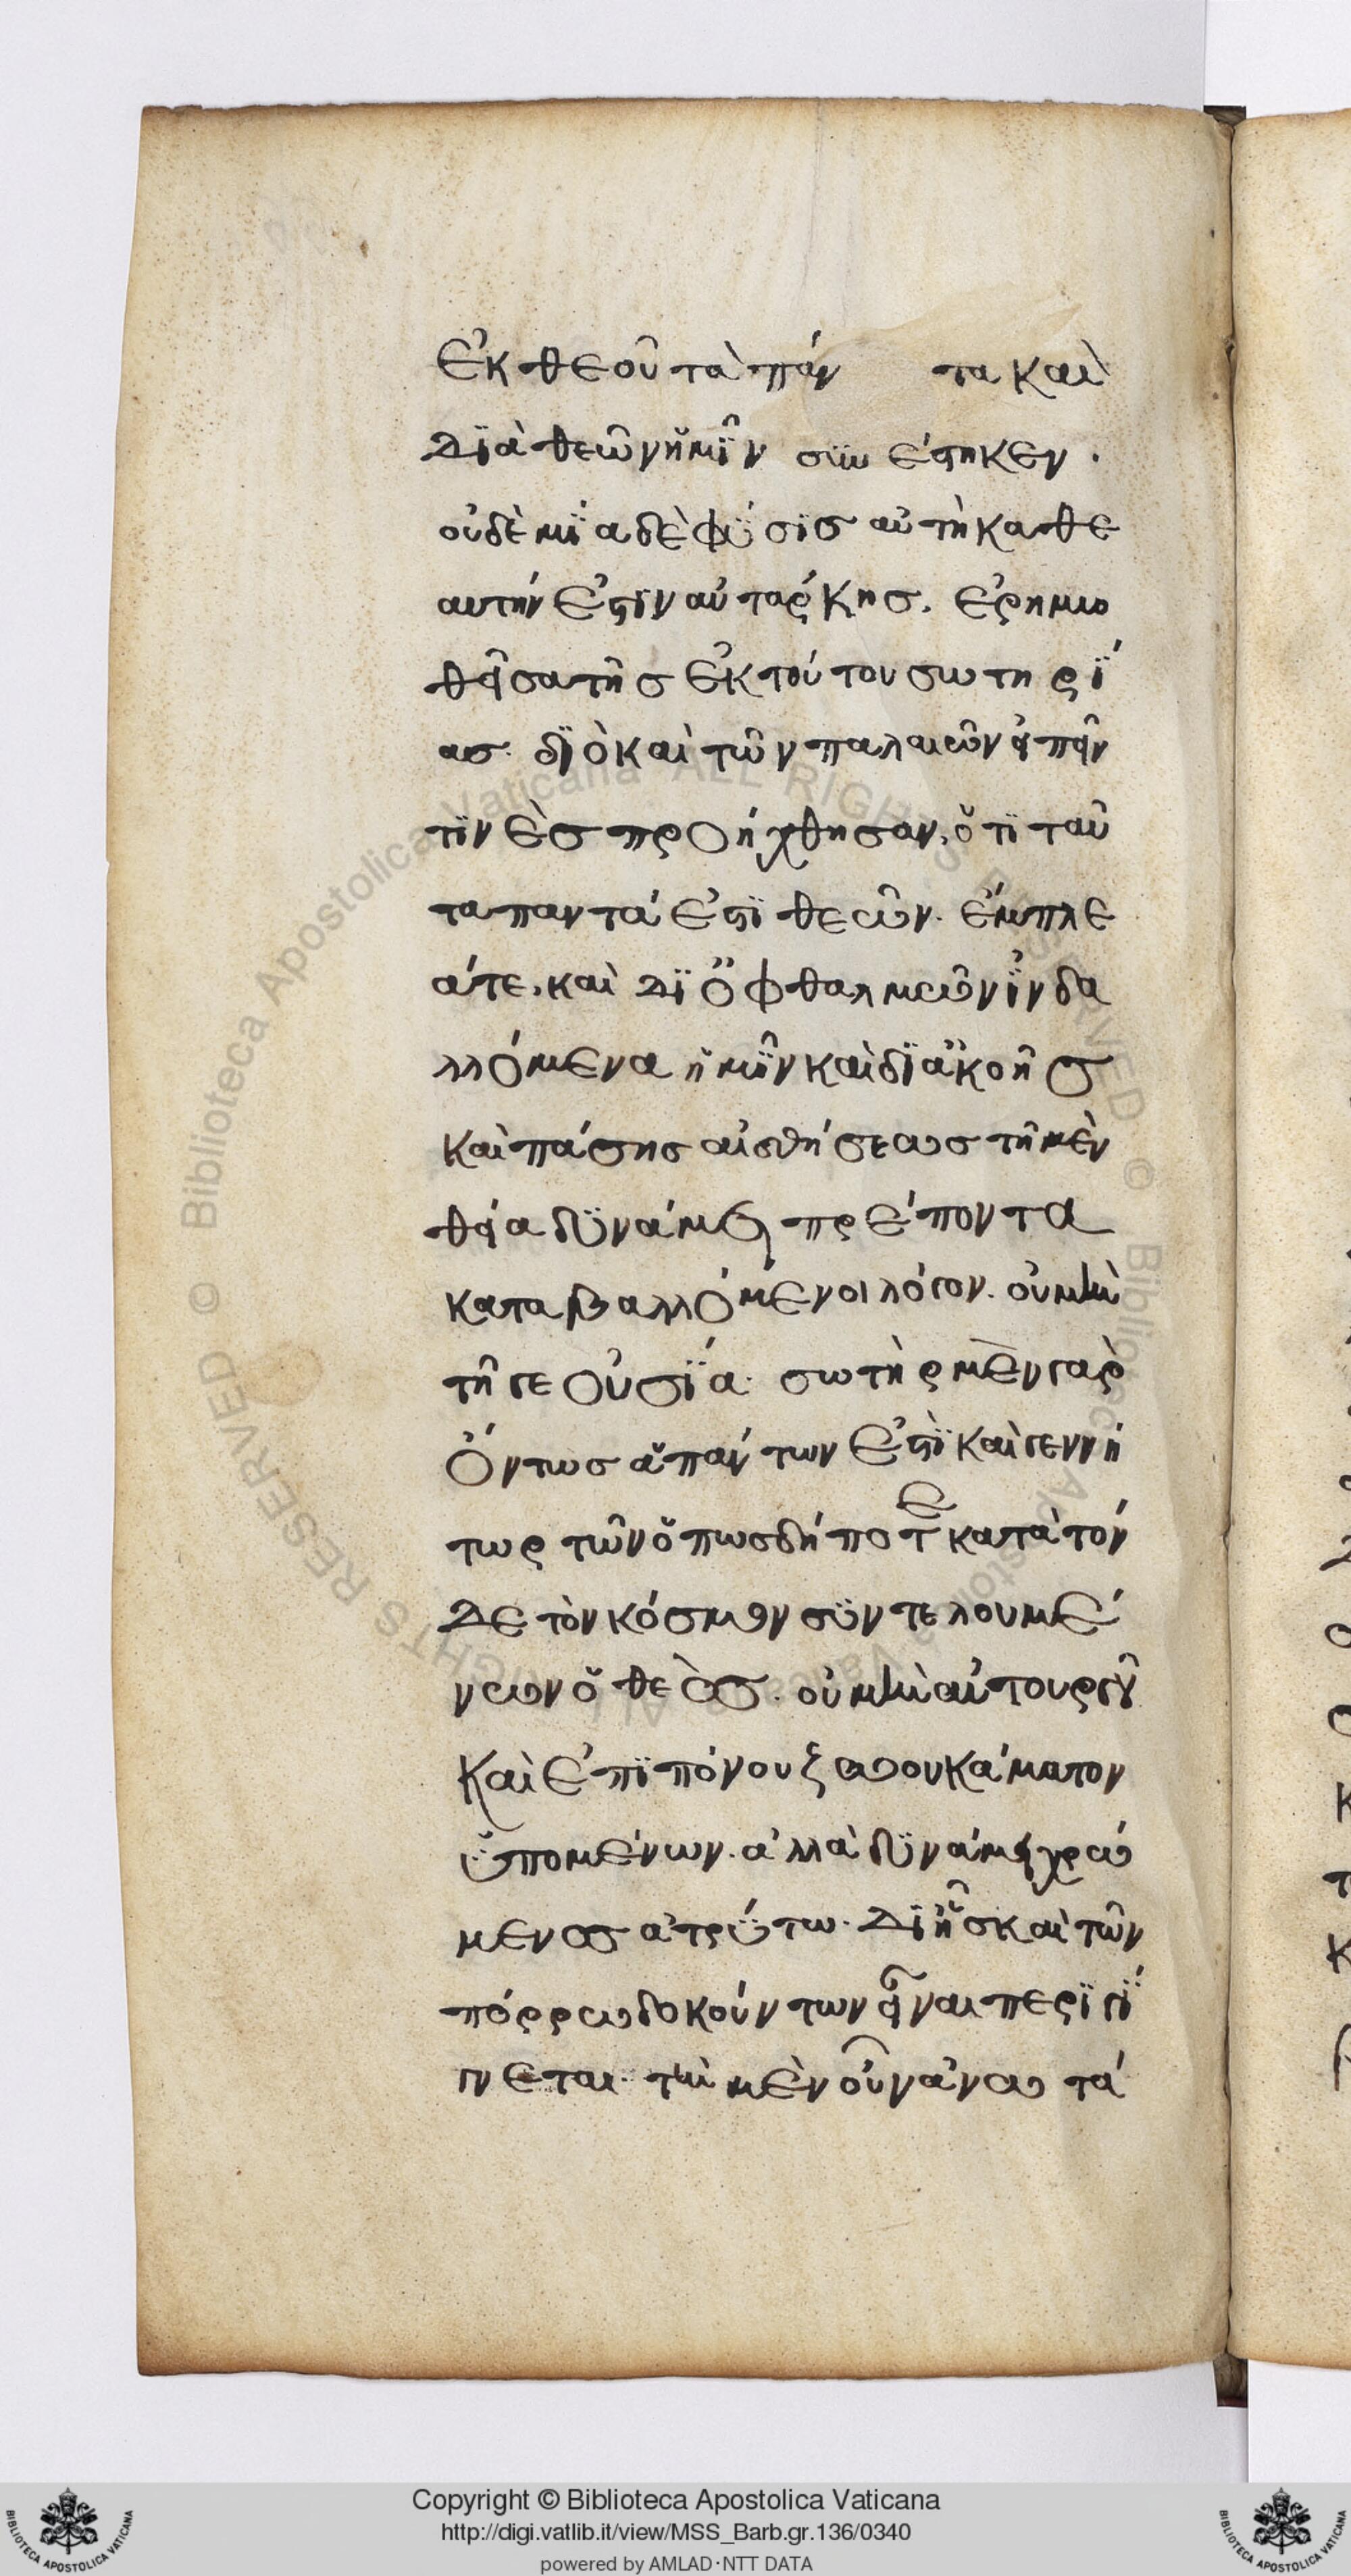 ἐκ θεοῦ τὰ πάν τα καὶ
διὰ θεῶν ἡμῖν συνέστηκεν.
οὐδὲ μία δὲ φύσις αὐτὴ καθ ε
αυτήν ἐστιν αὐτάρκης. ἐρημω
θεῖσα τῆς ἐκ τούτου σωτηρί
ας. διὸ καὶ τῶν παλαιῶν εἰπεῖν
τινὲς προήχθησαν, ὅτι ταῦ
τα παντά ἐστι θεῶν. ἔμπλε
άτε. καὶ δι ὀφθαλμῶν ἰνδα
λλόμενα ἡμῖν καὶ δι ἀκοῆς
καὶ πάσης αἰσθήσεως τῆ μὲν
θεία δυνάμει πρέποντα
καταβαλλόμενοι λόγον. οὐ μὴν
τῆ γε οὐσία. σωτὴρ μὲν γὰρ
ὄντως ἁπάντων ἐστὶ καὶ γεννή
τωρ τῶν ὁπωσδήποτε κατὰ τόν
δε τὸν κόσμον συντελουμέ
νων ὁ θεὸς. οὐ μὴν αὐτουργοῦ
καὶ ἐπιπόνου ζώου κάματον
ὑπομένων. ἀλλὰ δυνάμει χρώ
μενος ἀτρύτω. δι ἧς καὶ τῶν
πόρρω δοκούντων εἶναι περιγί
γνεται. τὴν μὲν οὖν ἀνω τά
Copyright © Biblioteca Apostolica Vaticana
http://digi.vatlib.it/view/MSS_Barb.gr.136/0340
powered by AMLAD·NTT DATA